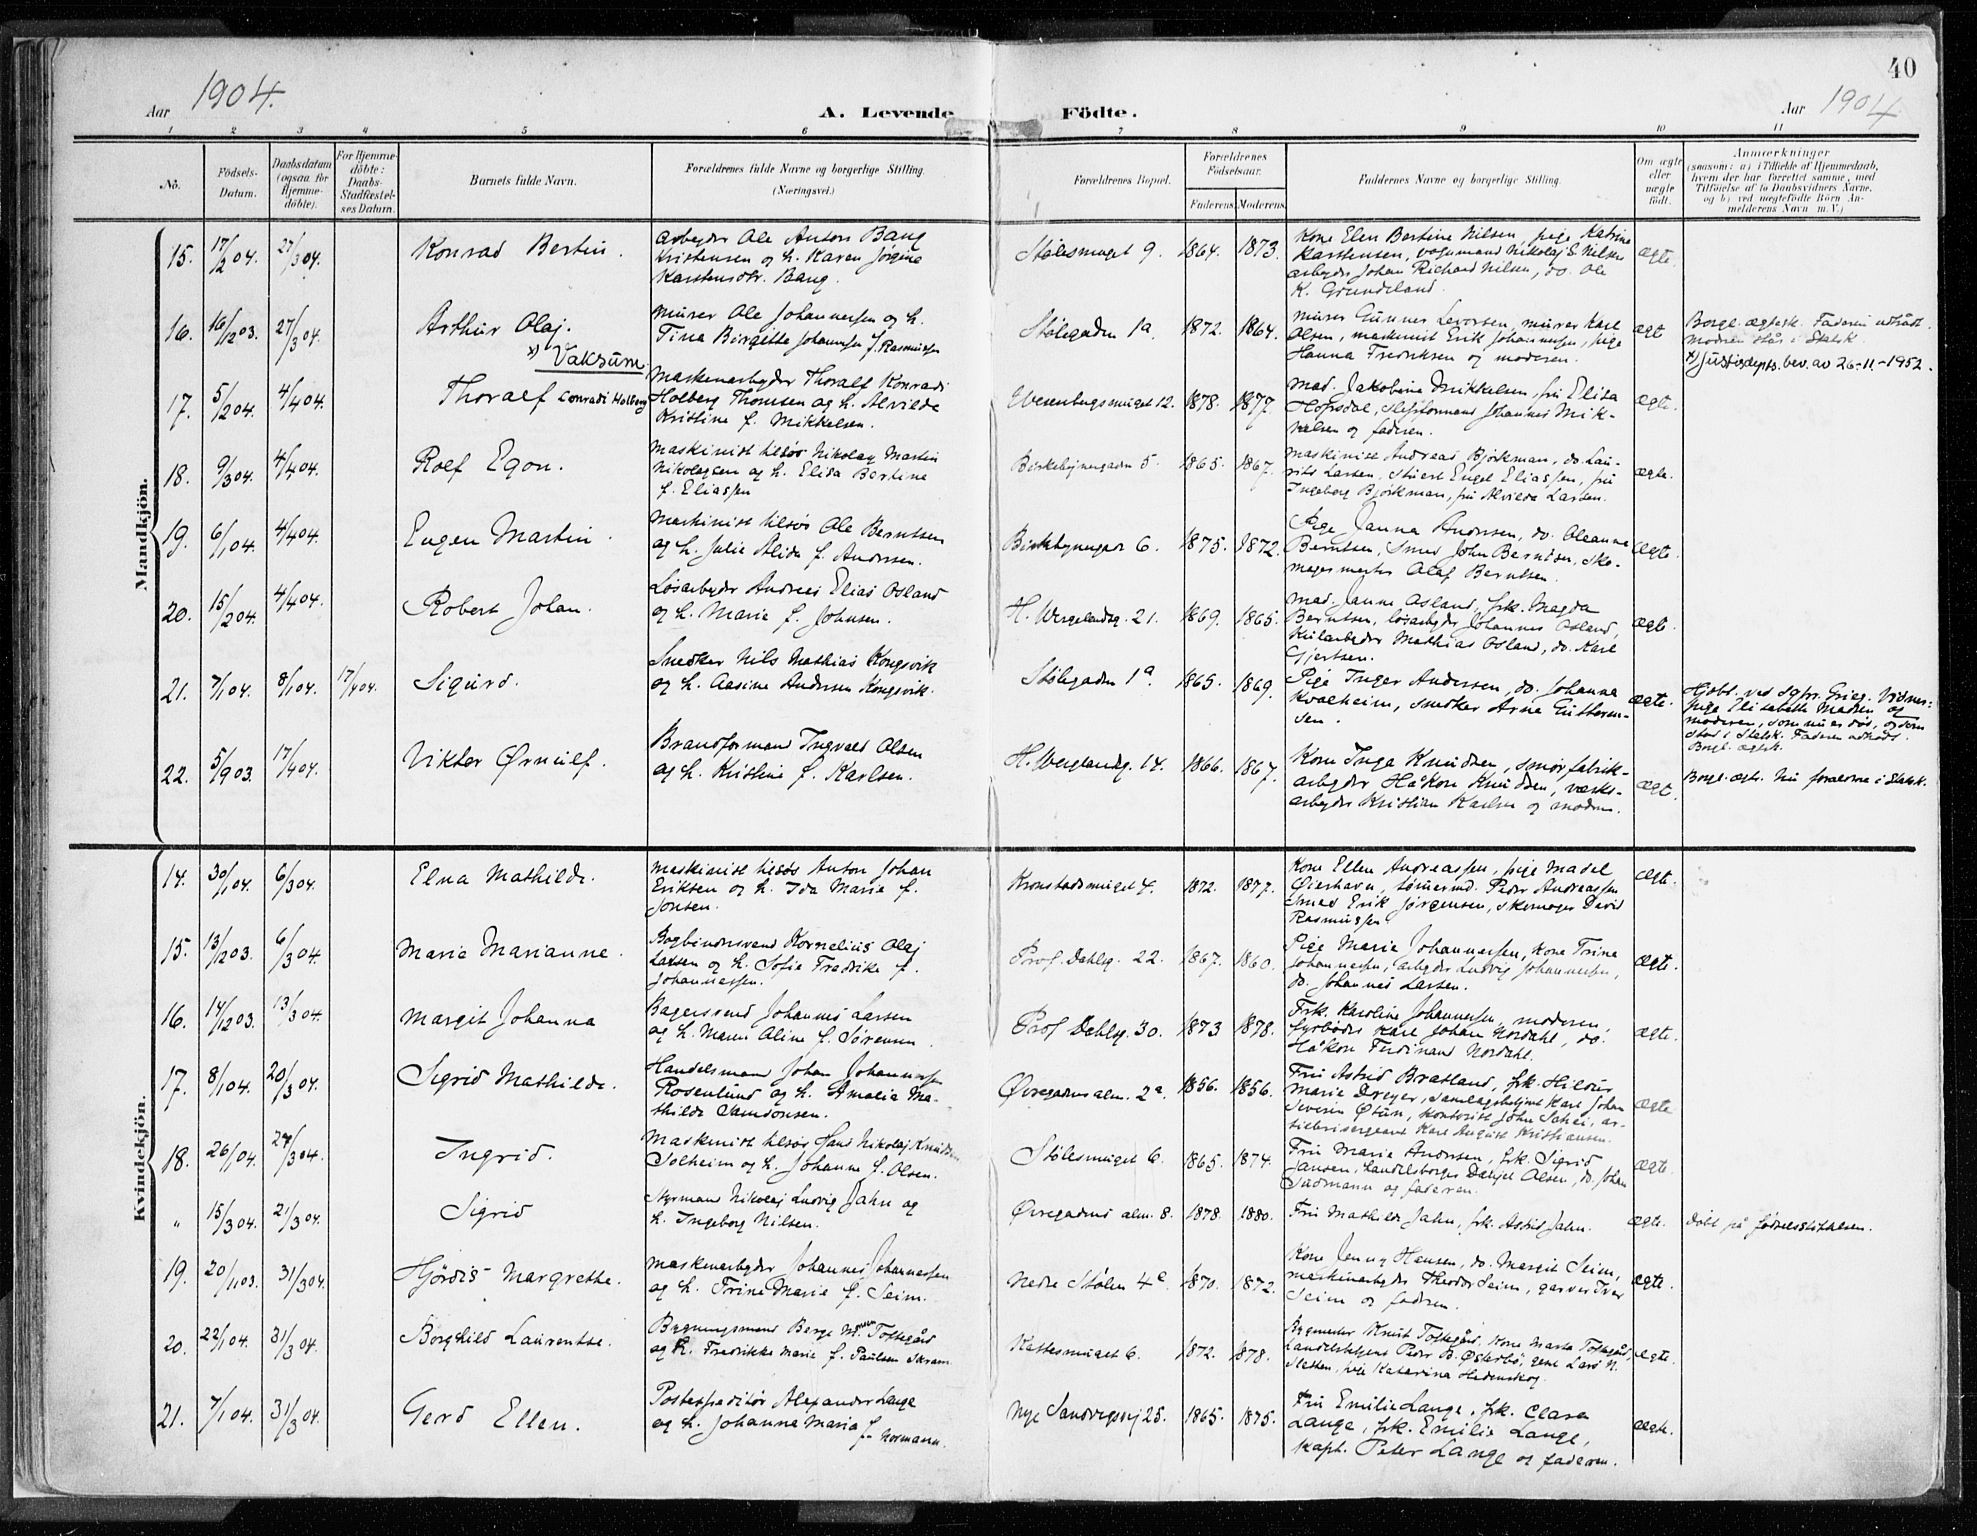 40
Aar 1904.
A. Levende Födte.
Aar 1904
1 2 3 4 5 6 7 8 9 10 11
No.
Födsels-Datum.
Daabsdatum (ogsaa for Hjemme-döbte).
For Hjemme-döbte: Daabs-Stadfæstel-ses Datum.
Barnets fulde Navn.
Forældrenes fulde Navne og borgerlige Stilling. (Næringsvei.)
Forældrenes Bopæl.
Forældrenes Födselsaar.
Faderens. Moderens.
Faddernes Navne og borgerlige Stilling.
Om ægte eller uægte födt.
Anmærkninger
(saasom: a) i Tilfælde af Hjemmedaab, hvem der har forrettet samme, med Tilföielse af to Daabsvidners Navne, og b) ved uægtefödte Börn Anmelderens Navn m. V.)
Mandkjön.
15. 17/2 04. 27/3 04. Konrad Bertin.
arbeyder Ole Anton Bang
Kristensen og h. Karen Jørgine
Karstensdtr. Bang.
Stølesmuget 9. 1864. 1873.
Kone Elen Bertine Nilsen, pige Katrine
Karstensen, vognmand Nikolaj E. Nilsen
arbeyder Johan Richard Nilsen, do. Ole
K. Grundeland.
ægte.
16. 16/12 03. 27/3 04. Arthur Olaj.
x) Vaksum
murer Ole Johannessen og h.
Tina Birgitte Johannessen f. Rasmussen
Stølegaden 1a. 1872. 1864.
murer Gunner Levorsen, murer Karl
Olsen, maskinist Erik Johannessen, pige
Hanna Fredriksen og moderen.
ægt
Borgl. ægtesk. Faderen udtrådt.
moderen står i Statsk.
x) Justisdepts. bev. av 26-11-1952.
17. 5/2 04. 4/4 04. Thoralf Conradi Holberg
Maskinarbeyder Thoralf Konradi
Holberg Thomsen og h. Alvilde
Kristine f. Mikkelsen.
Wesenbergsmuget 12. 1878. 1877.
Mad. Jakobine Mikkelsen, fru Elisa
Hopsdal, Skipsformand Johannes Mik-
kelsen og faderen.
ægte.
18. 9/3 04. 4/4 04. Rolf Egon.
Maskinist tilsøs Nikolay Martin
Nikolaysen og h. Elisa Bertine
f. Eliassen
5. 1865. 1867.
Maskinist Andreas Bjørkman, do. Lau-
rits Larsen, Stuert Engel Eliassen, fru
Ingeborg Bjørkman, fru Alvilde Larsen.
ægte.
19. 6/1 04. 4/4 04. Eugen Martin.
Maskinist tilsøs Ole Berntsen
og h. Julie Alida f. Andersen.
6. 1875. 1872.
Pige Janna Andersen, do. Oleanna
Berntsen, Smed John Berntsen, Sko-
magermester Olaf Berntsen.
ægte.
20. 15/2 04. 4/4 04. Robert Johan.
Løsarbeyder Andreas Elias Osland
og h. Marie f. Johnsen.
H. Wergelandsg. 21. 1869. 1865.
Mad. Janna Osland, frk. Magda
Berntsen, løsarbeyder Johannes Osland,
Mathias Osland, do. Karl
Gjertsen.
ægte.
21. 7/1 04. 8/1 04. 17/4 04. Sigurd.
Snedker Nils Mathias Kongsvik
og h. Aasine Andersen Kongsvik.
Stølegaden 1a 1865. 1869.
Pige Inger Andersen, do. Johanna
Kvalheim, snedker Arne Guttorm-
sen.
ægte.
Hjdbt. ved sgpr. Grieg. Vidner:
pige Elisabeth Madsen og
moderen, som nu er død, og som
stod i Statsk. Faderen udtråd.
Borgl. ægtsk.
22. 5/9 03. 17/4 04. Viktor Ørnulf.
Brandformand Ingvald Olsen
og h. Kristine f. Karlsen.
H. Werglandsg. 14. 1866. 1867.
Kone Inga Knudsen, smørfabrik-
arbeyder Håkon Knudsen, værks-
arbeyder Kristian Karlsen og modern.
ægt.
Borgl. ægts. Nu forældrene i Statsk.
Kvindekjön.
14. 30/1 04. 6/3 04. Elna Mathilde.
Maskinist tilsøs Anton Johan
Eriksen og h. Ida Marie f.
Jonsen.
Kronstadsmuget 4. 1872. 1877.
Kone Ellen Andreassen, pige Madel
Øierhavn, tømermd. Peder Andreassen
Smed Erik Jørgensen, skomager David
Rasmussen.
ægte.
15. 13/12 03. 6/3 04. Marie Marianne.
Bogbindersvend Kornelius Olaj
Larsen og h. Sofie Fredrike f.
Johannessen.
Prof. Dahlsg. 22. 1867. 1860.
Pige Marie Johannessen, kone Trine
Johannessen, arbeyder Ludvig Johannessen,
do. Johannes Larsen.
ægte.
16. 14/12 03. 13/3 04. Margit Johanna
Bagersvend Johannes Larsen
og h. Maren Aline f. Sørensen.
Prof Dahlsg. 30. 1873 1878.
Frk. Karoline Johannessen, moderen,
fyrbøder Karl Johan Nordahl, do.
Håkon Ferdinand Nordahl.
ægte.
17. 8/1 04. 20/3 04. Sigrid Mathilde.
Handelsmand Johan Johannessen
Rosenlund og h. Amalia Ma-
thilde Samsonsen.
Øvregadens alm. 2a. 1856. 1856.
Fru Astrid Bratland, frk. Hildur
Marie Dreyer, Karl Johan
Severin Østun, kontorist John Schei, ar-
tillerisergeant Karl August Kristiansen.
ægte
18. 26/1 04. 27/3 04. Ingrid.
Maskinist tilsøs Hans Nikolaj Knudsen
Solheim og h. Johanne f. Olsen.
Stølesmuget 6. 1865. 1874.
Fru Marie Andersen, frk. Sigrid
Jansen, handelsborger Daniel Olsen, do. Johan
Sudmann og faderen.
ægte.
" 15/3 04. 21/3 04. Sigrid
Styrmand Nikolaj Ludvig Jahn og
h. Ingeborg Nilsen.
Øvregadens alm. 8. 1878. 1880.
Fru Mathilde Jahn, frk. Astrid Jahn.
ægte.
Døbt på fødselsstiftelsen.
19. 20/11 03. 31/3 04. Hjördis Margrethe.
Maskinarbeyder Johannes Johannessen
og h. Trine Marie f. Seim.
Nedre Stølen 4c. 1870. 1872.
Kone Jenny Hansen, do. Margit Seim,
maskinarbeyder Theodor Seim, garver Iver
Seim og faderen.
ægte.
20. 22/1 04. 31/3 04. Borghild Laurentse.
Bygningsmand Berge Monsen Toftegård
og h. Fredrikke Marie f. Paulsen Skram.
Kattesmuget 6. 1872. 1878.
Bygmester Knut Toftegård, Kone Marta Toftegård,
handelsbetjent Peder B. Østerbö, gene Lars N.
Sletten, pige Katarina Hedenskog.
ægte.
21. 7/1 04. 31/3 04. Gerd Ellen.
Postexpeditør Alexander Lange
og h. Johanna Maria f. Normann.
Nye Sandvigsvej 25. 1865. 1875.
Fru Emilie Lange, frk. Clara
Lange, frk. Emilie Lange,
Kapt. Peter Lange og faderen.
ægte.